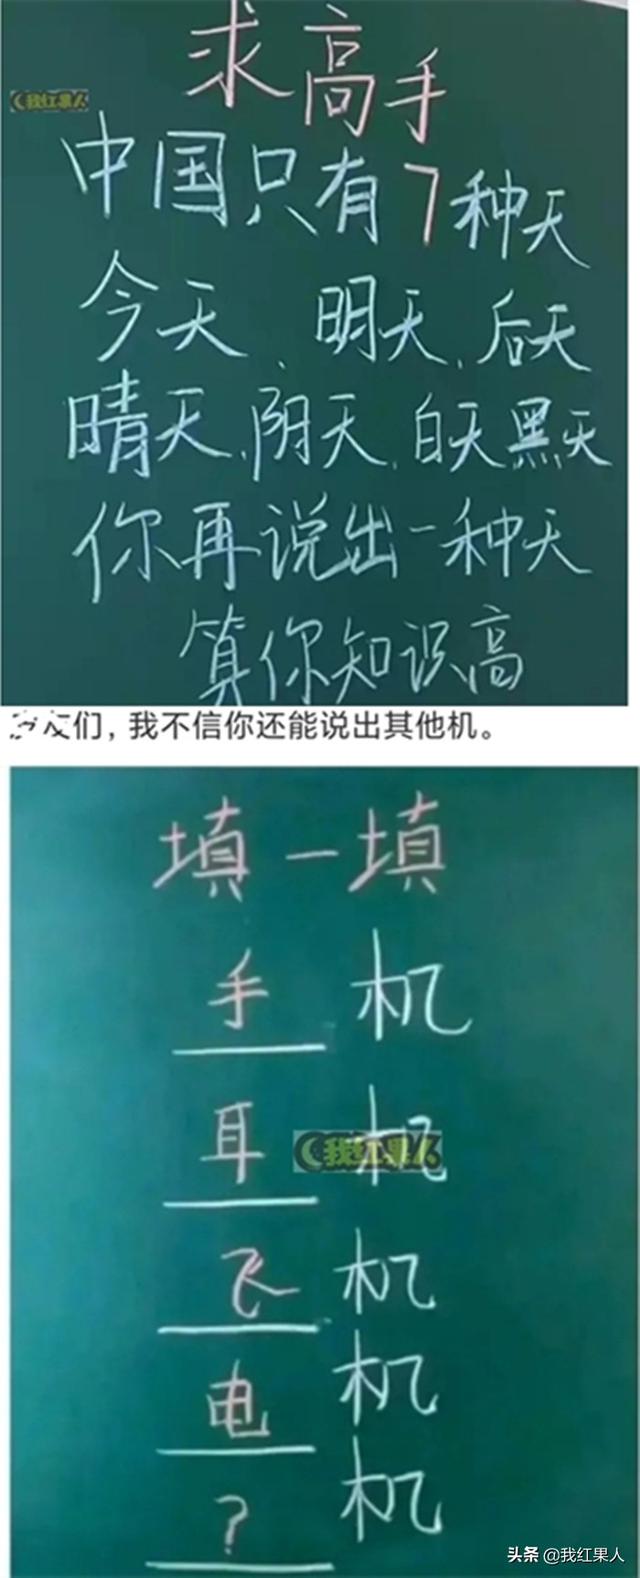 求高手
我红果人
中国只有7种天
今天、明天、后天
晴天、阴天、白天黑天
你再说出一种天
算你知识高
们，我不信你还能说出其他机。
填一填
手机
耳机
我红果人
飞机
电机
？机
头条 @我红果人